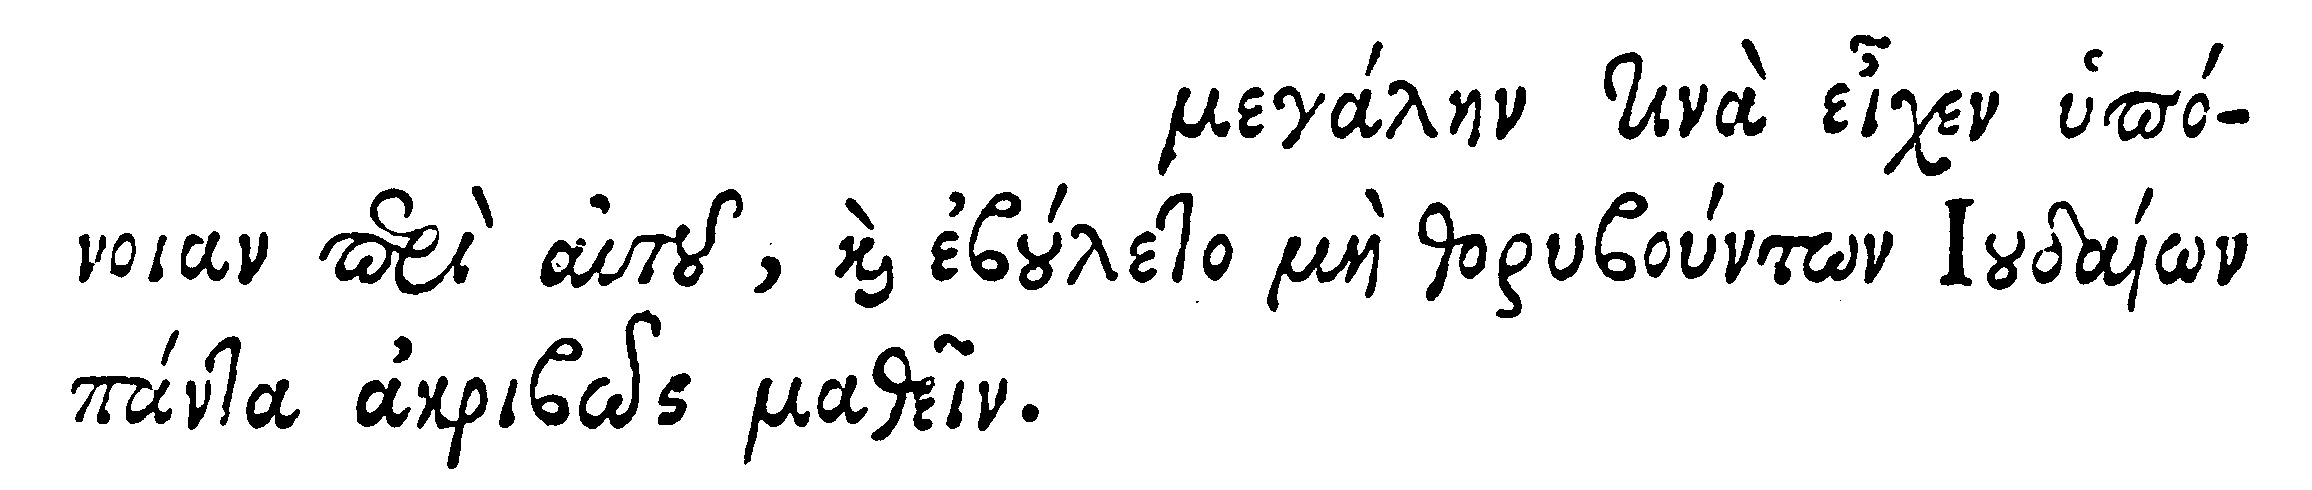 μεγάλην τινὰ εἶχεν ὑπό-
νοιαν περὶ αὐτοῦ, καὶ ἐβούλετο μὴ θορυβούντων Ιουδαίων
πάντα ἀκριβῶς μαθεῖν.